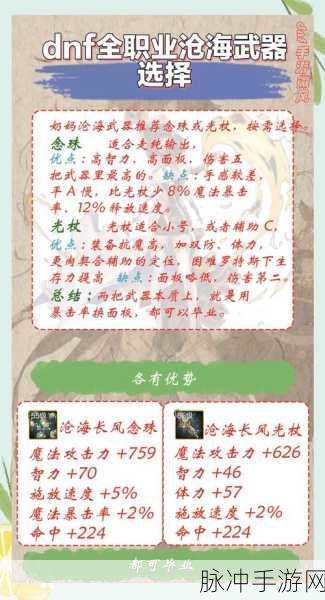 dnf全职业沧海武器
选择
奶妈沧海武器推荐念珠或光杖，按需选择。
念珠 适合走纯输出，
优点：高智力、高面板，伤害五
把武器里最高的。缺点：手感软差，
平A慢，比光杖少8%魔法暴击
率，12%释放速度。
光杖 光杖适合小号，或者辅助C，
优点：装备抗魔高，加双防、体力，
更肉契合辅助的定位，困难罗特斯下生
存力提高 缺点：面板略低，伤害第二。
总结：两把武器本质上，就是用
暴击率换面板，都可以毕业。
各有优势
沧海长风念珠
魔法攻击力 +759
智力 +70
施放速度 +5%
魔法暴击率 +2%
命中 +224
沧海长风光杖
魔法攻击力 +626
智力 +46
体力 +57
施放速度 +2%
命中 +224
都可毕业
脉冲手游网